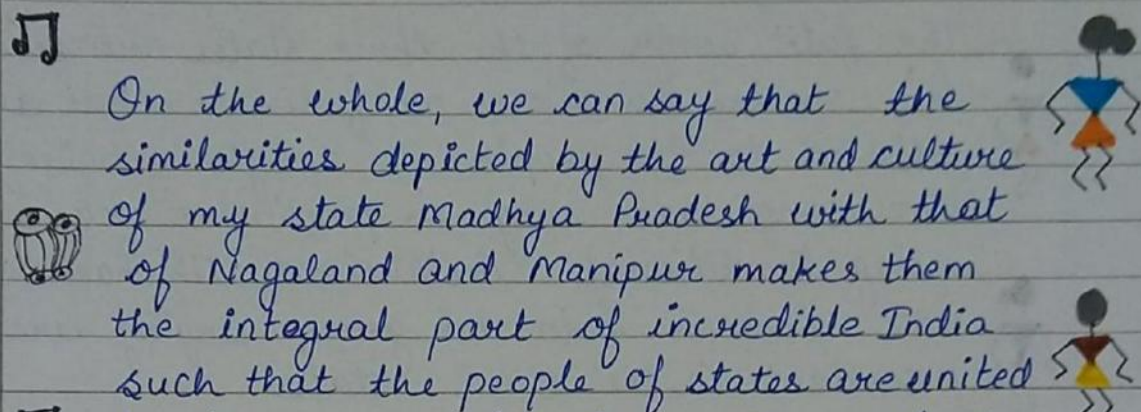 On the whole, we can say that the
similarities depicted by the art and culture
of my state Madhya Pradesh with that
of Nagaland and Manipur makes them
the integral part of incredible India
such that the people of states are united